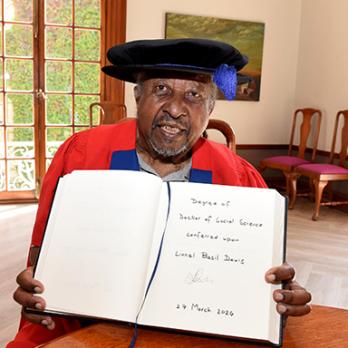 Degree of
Doctor of Social Science
conferred upon
Lionel Basil Davis
24 March 2024